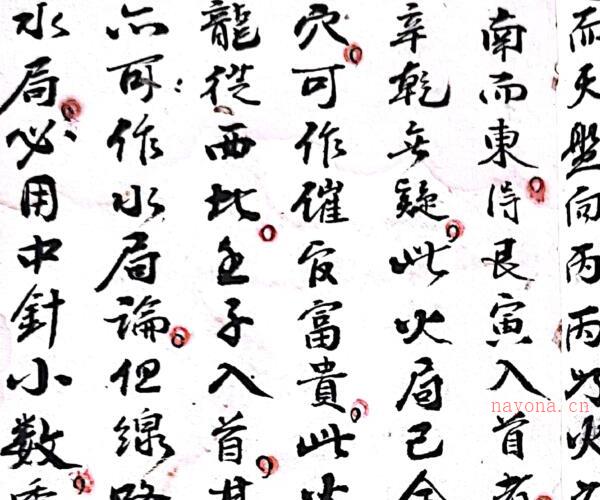 而天盤向丙丙乃火
南而東得艮寅入首
辛乾無疑此火局已合
穴可作催官富貴此
龍從西北壬子入首
亦可作水局論但線路
水局必用中針小数
nayona.cn